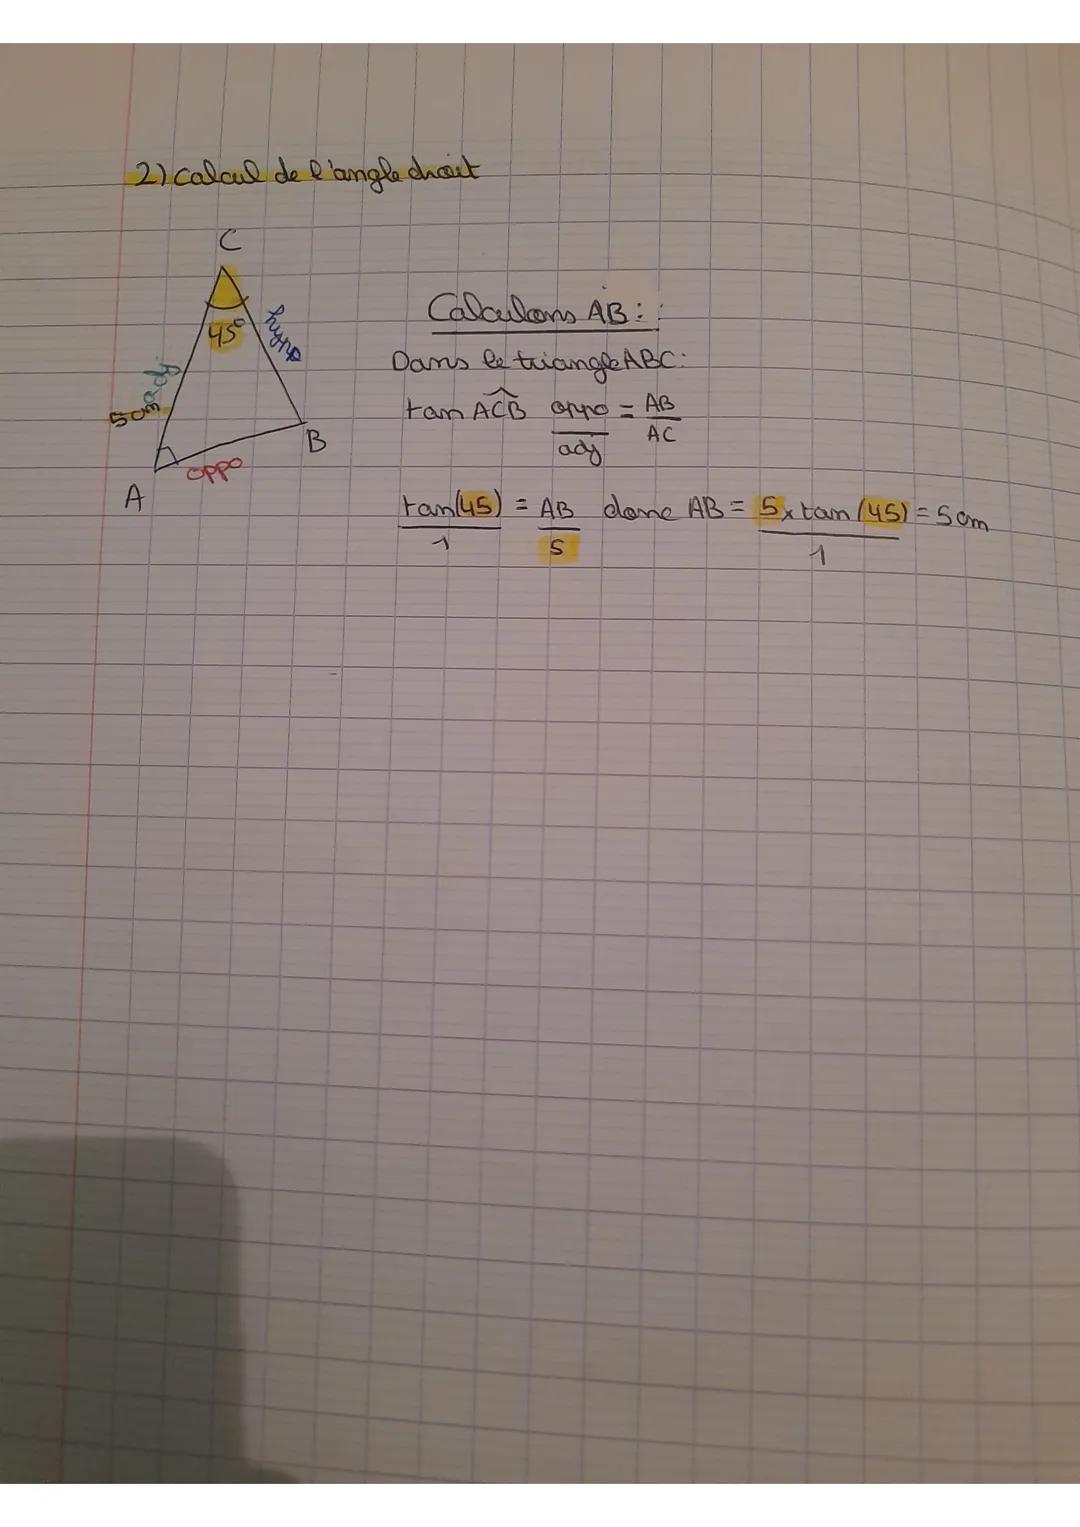 2) calcul de l'angle droit
C
45°
hypo
adj
5cm
oppo
A
B
Calculons AB :
Dans le triangle ABC :
tan ACB oppo = AB
adj AC
tan(45) = AB donc AB = 5 x tan (45) = 5 cm
1 5 1